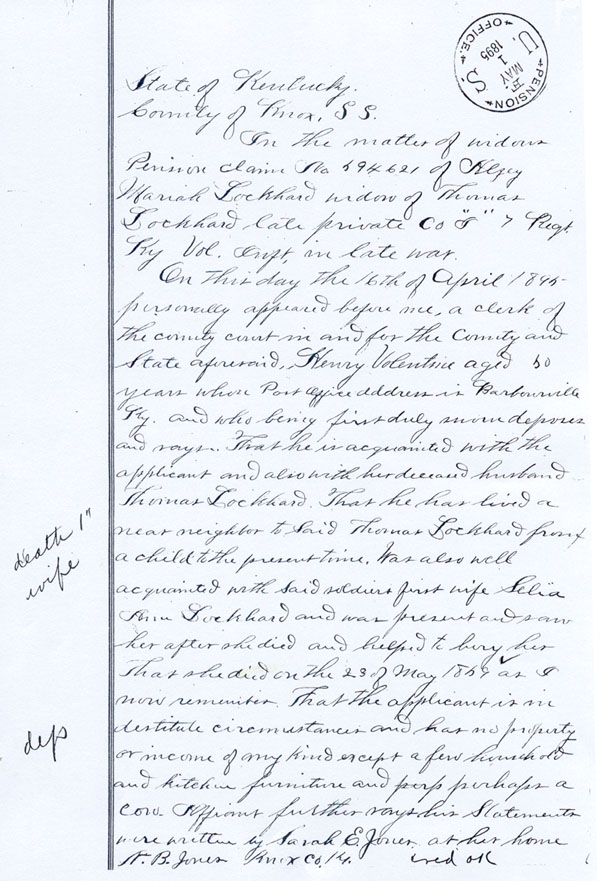 U. S. PENSION OFFICE.
MAY 1 1895
State of Kentucky.
County of Knox, S S.
In the matter of widows
Pension claim No 594621 of Alzey
Mariah Lockhard widow of Thomas
Lockhard late private Co "F" 7 Regt.
Ky Vol. Inft, in late war.
On this day the 16th of April 1895
personally appeared before me, a clerk of
the county court in and for the County and
State aforesaid, Henry Volentine aged 50
years whose Post office address is Barbourville
Ky. and who being first duly sworn deposes
and says. That he is acquainted with the
applicant and also with her deceased husband
Thomas Lockhard. That he has lived a
near neighbor to said Thomas Lockhard from
a child to the present time. Was also well
death 1"
acquainted with said soldiers first wife Selia
wife
Ann Lockhard and was present and saw
her after she died and helped to bury her
That she died on the 23 of May 1859 as I
now remember. That the applicant is in
destitute circumstances and has no property
deps
or income of my kind except a few household
and kitchen furniture and perp perhaps a
cow. Affiant further says his Statements
were written by Sarah E. Jones. at her home
N. B. Jones Knox Co. Ky. ok